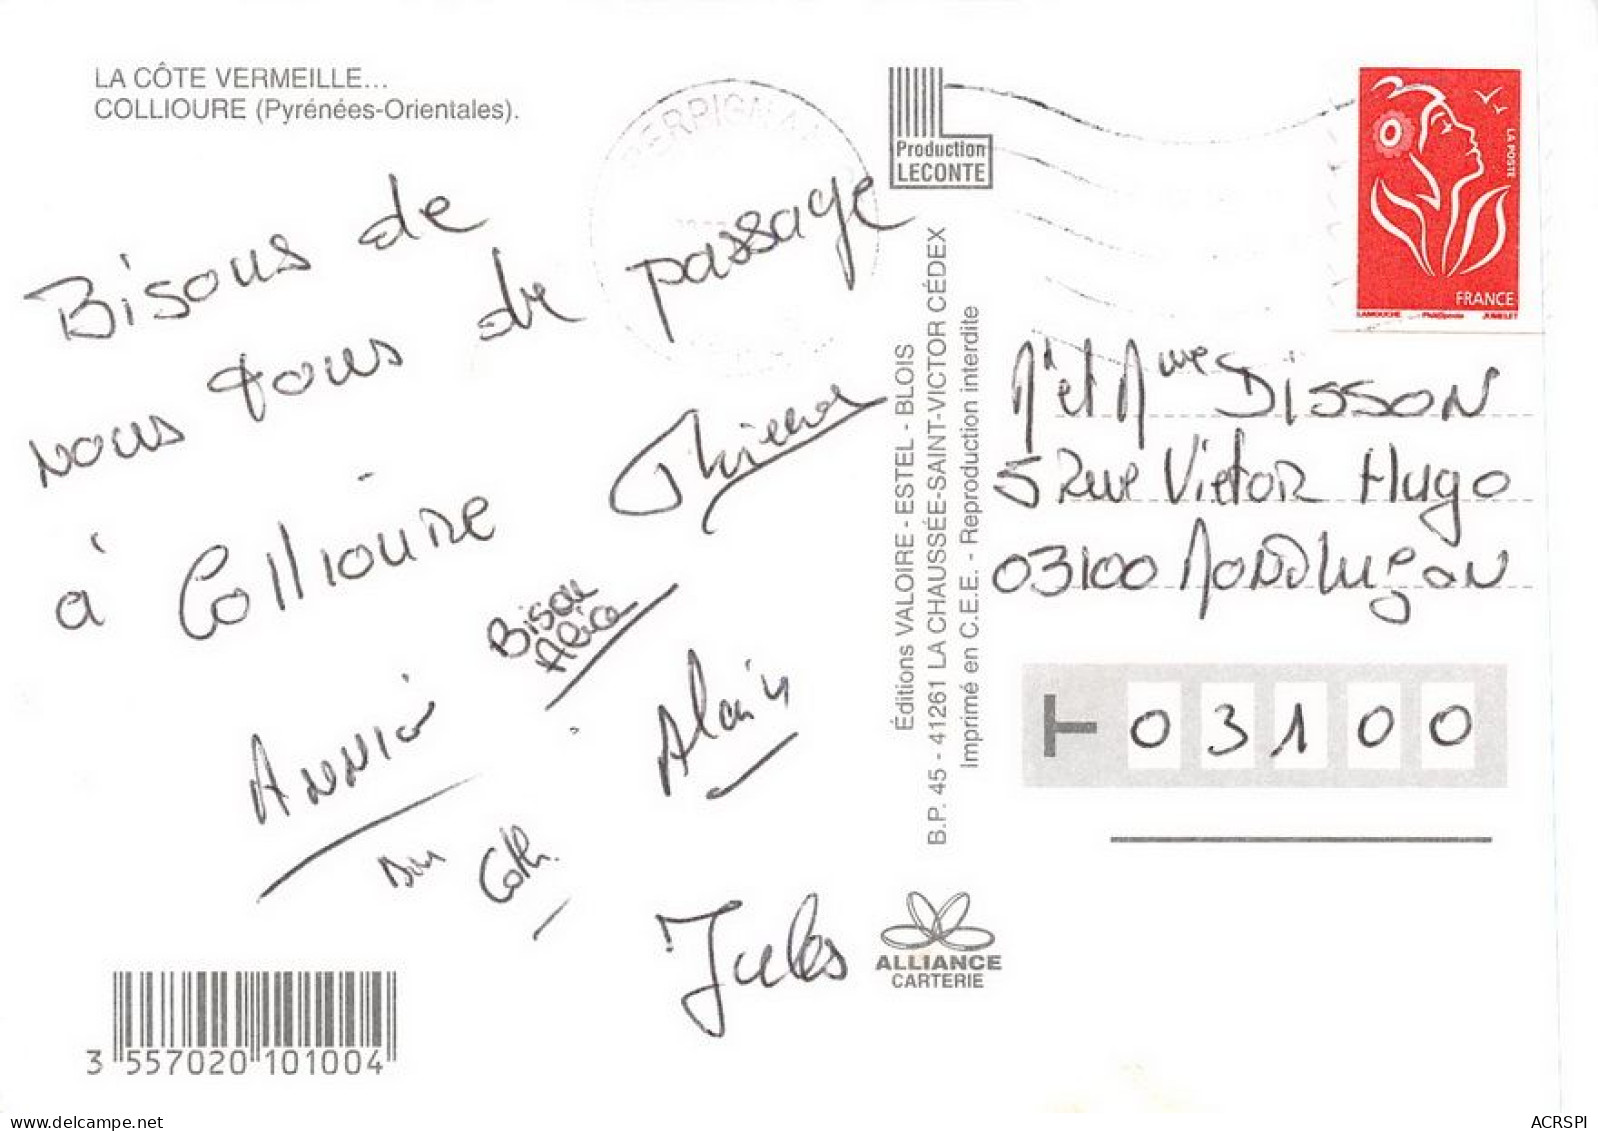 LA CÔTE VERMEILLE...
COLLIOURE (Pyrénées-Orientales).
Bisous de
nous tous de passage
à Collioure
Bisou
Alice
Annie
Alain
Cath.
Jules
PERPIGNAN
Production
LECONTE
Éditions VALOIRE - ESTEL - BLOIS
B.P. 45 - 41261 LA CHAUSSÉE-SAINT-VICTOR CÉDEX
Imprimé en C.E.E. - Reproduction interdite
LA POSTE
FRANCE
LAMOUCHE Phil@poste JUMELET
Mr et Mme DISSON
5 Rue Victor Hugo
03100 Montluçon
03100
ALLIANCE
CARTERIE
3 557020 101004
ACRSPI